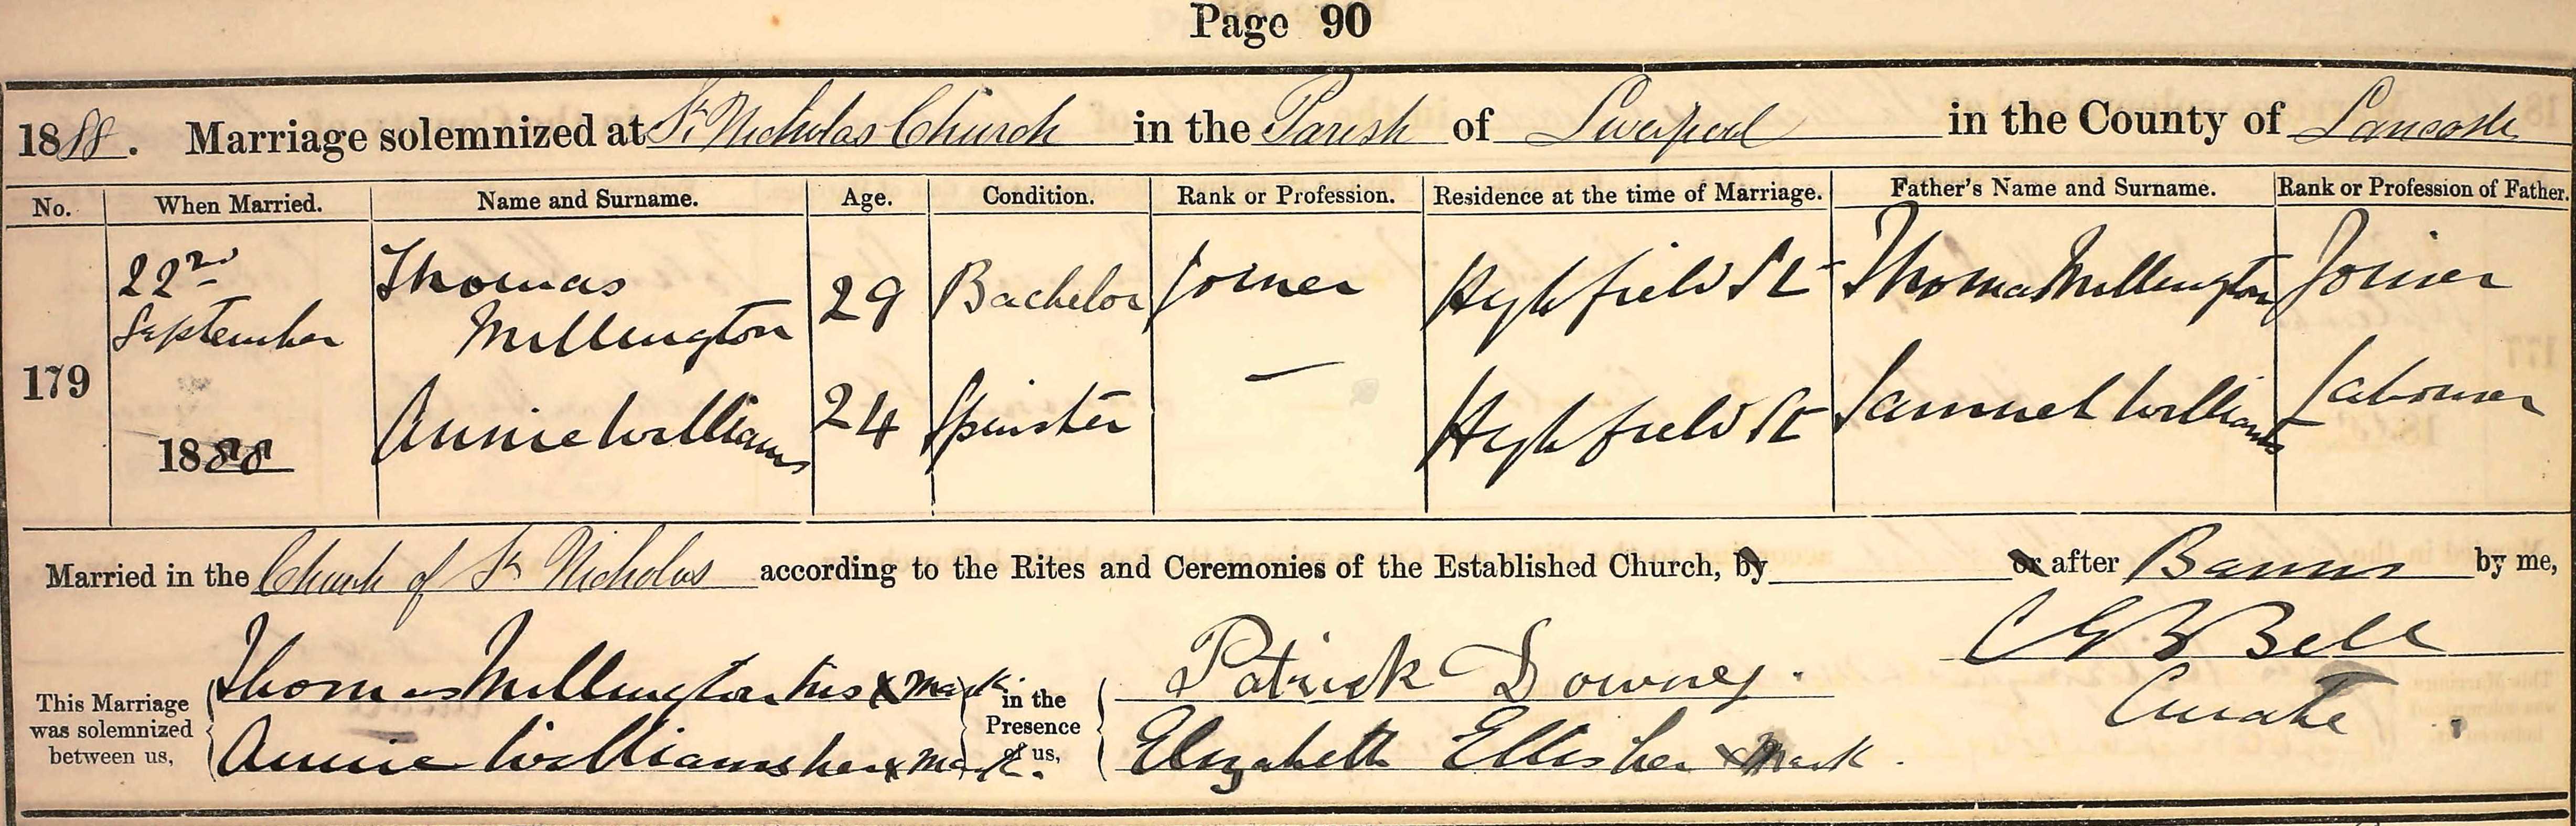 Page 90
1888. Marriage solemnized at St Nicholas Church in the Parish of Liverpool in the County of Lancaster
No. When Married. Name and Surname. Age. Condition. Rank or Profession. Residence at the time of Marriage. Father's Name and Surname. Rank or Profession of Father.
179
22nd September 1888
Thomas Millington 29 Bachelor Joiner Highfield St Thomas Millington Joiner
Annie Williams 24 Spinster — Highfield St Samuel Williams Labourer
Married in the Church of St Nicholas according to the Rites and Ceremonies of the Established Church, by or after Banns by me,
C G B Bell
Curate
This Marriage was solemnized between us,
Thomas Millington his x mark
Annie Williams her x mark.
in the Presence of us,
Patrick Downey.
Elizabeth Ellis her x mark.